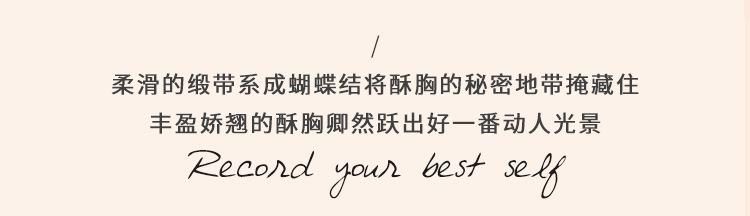 /
柔滑的缎带系成蝴蝶结将酥胸的秘密地带掩藏住
丰盈娇翘的酥胸卿然跃出好一番动人光景
Record your best self